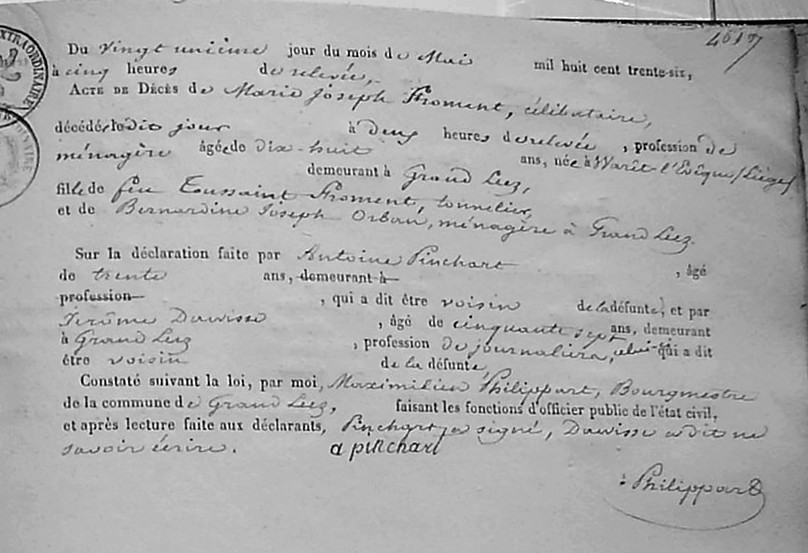 EXTRAORDINAIRE
4617
Du vingt unième jour du mois de Mai mil huit cent trente-six,
à cinq heures de relevée,
ACTE DE DÉCÈS de Marie Joseph Froment, célibataire,
décédée ledit jour à deux heures de relevée, profession de
ménagère âgée de dix-huit ans, née à Warêt-l'Evêque (Liège)
demeurant à Grand Leez,
fille de feu Toussaint Froment, tonnelier,
et de Bernardine Joseph Orban, ménagère à Grand Leez.
Sur la déclaration faite par Antoine Pinchart, âgé
de trente ans, demeurant à
profession, qui a dit être voisin de la défunte, et par
Jérôme Dawisse, âgé de cinquante sept ans, demeurant
à Grand Leez, profession de journalier, celui-ci qui a dit
être voisin de la défunte
Constaté suivant la loi, par moi, Maximilien Philippart, Bourgmestre
de la commune de Grand Leez, faisant les fonctions d'officier public de l'état civil,
et après lecture faite aux déclarants, Pinchart a signé, Dawisse a dit ne
savoir écrire. a pinchart
Philippart